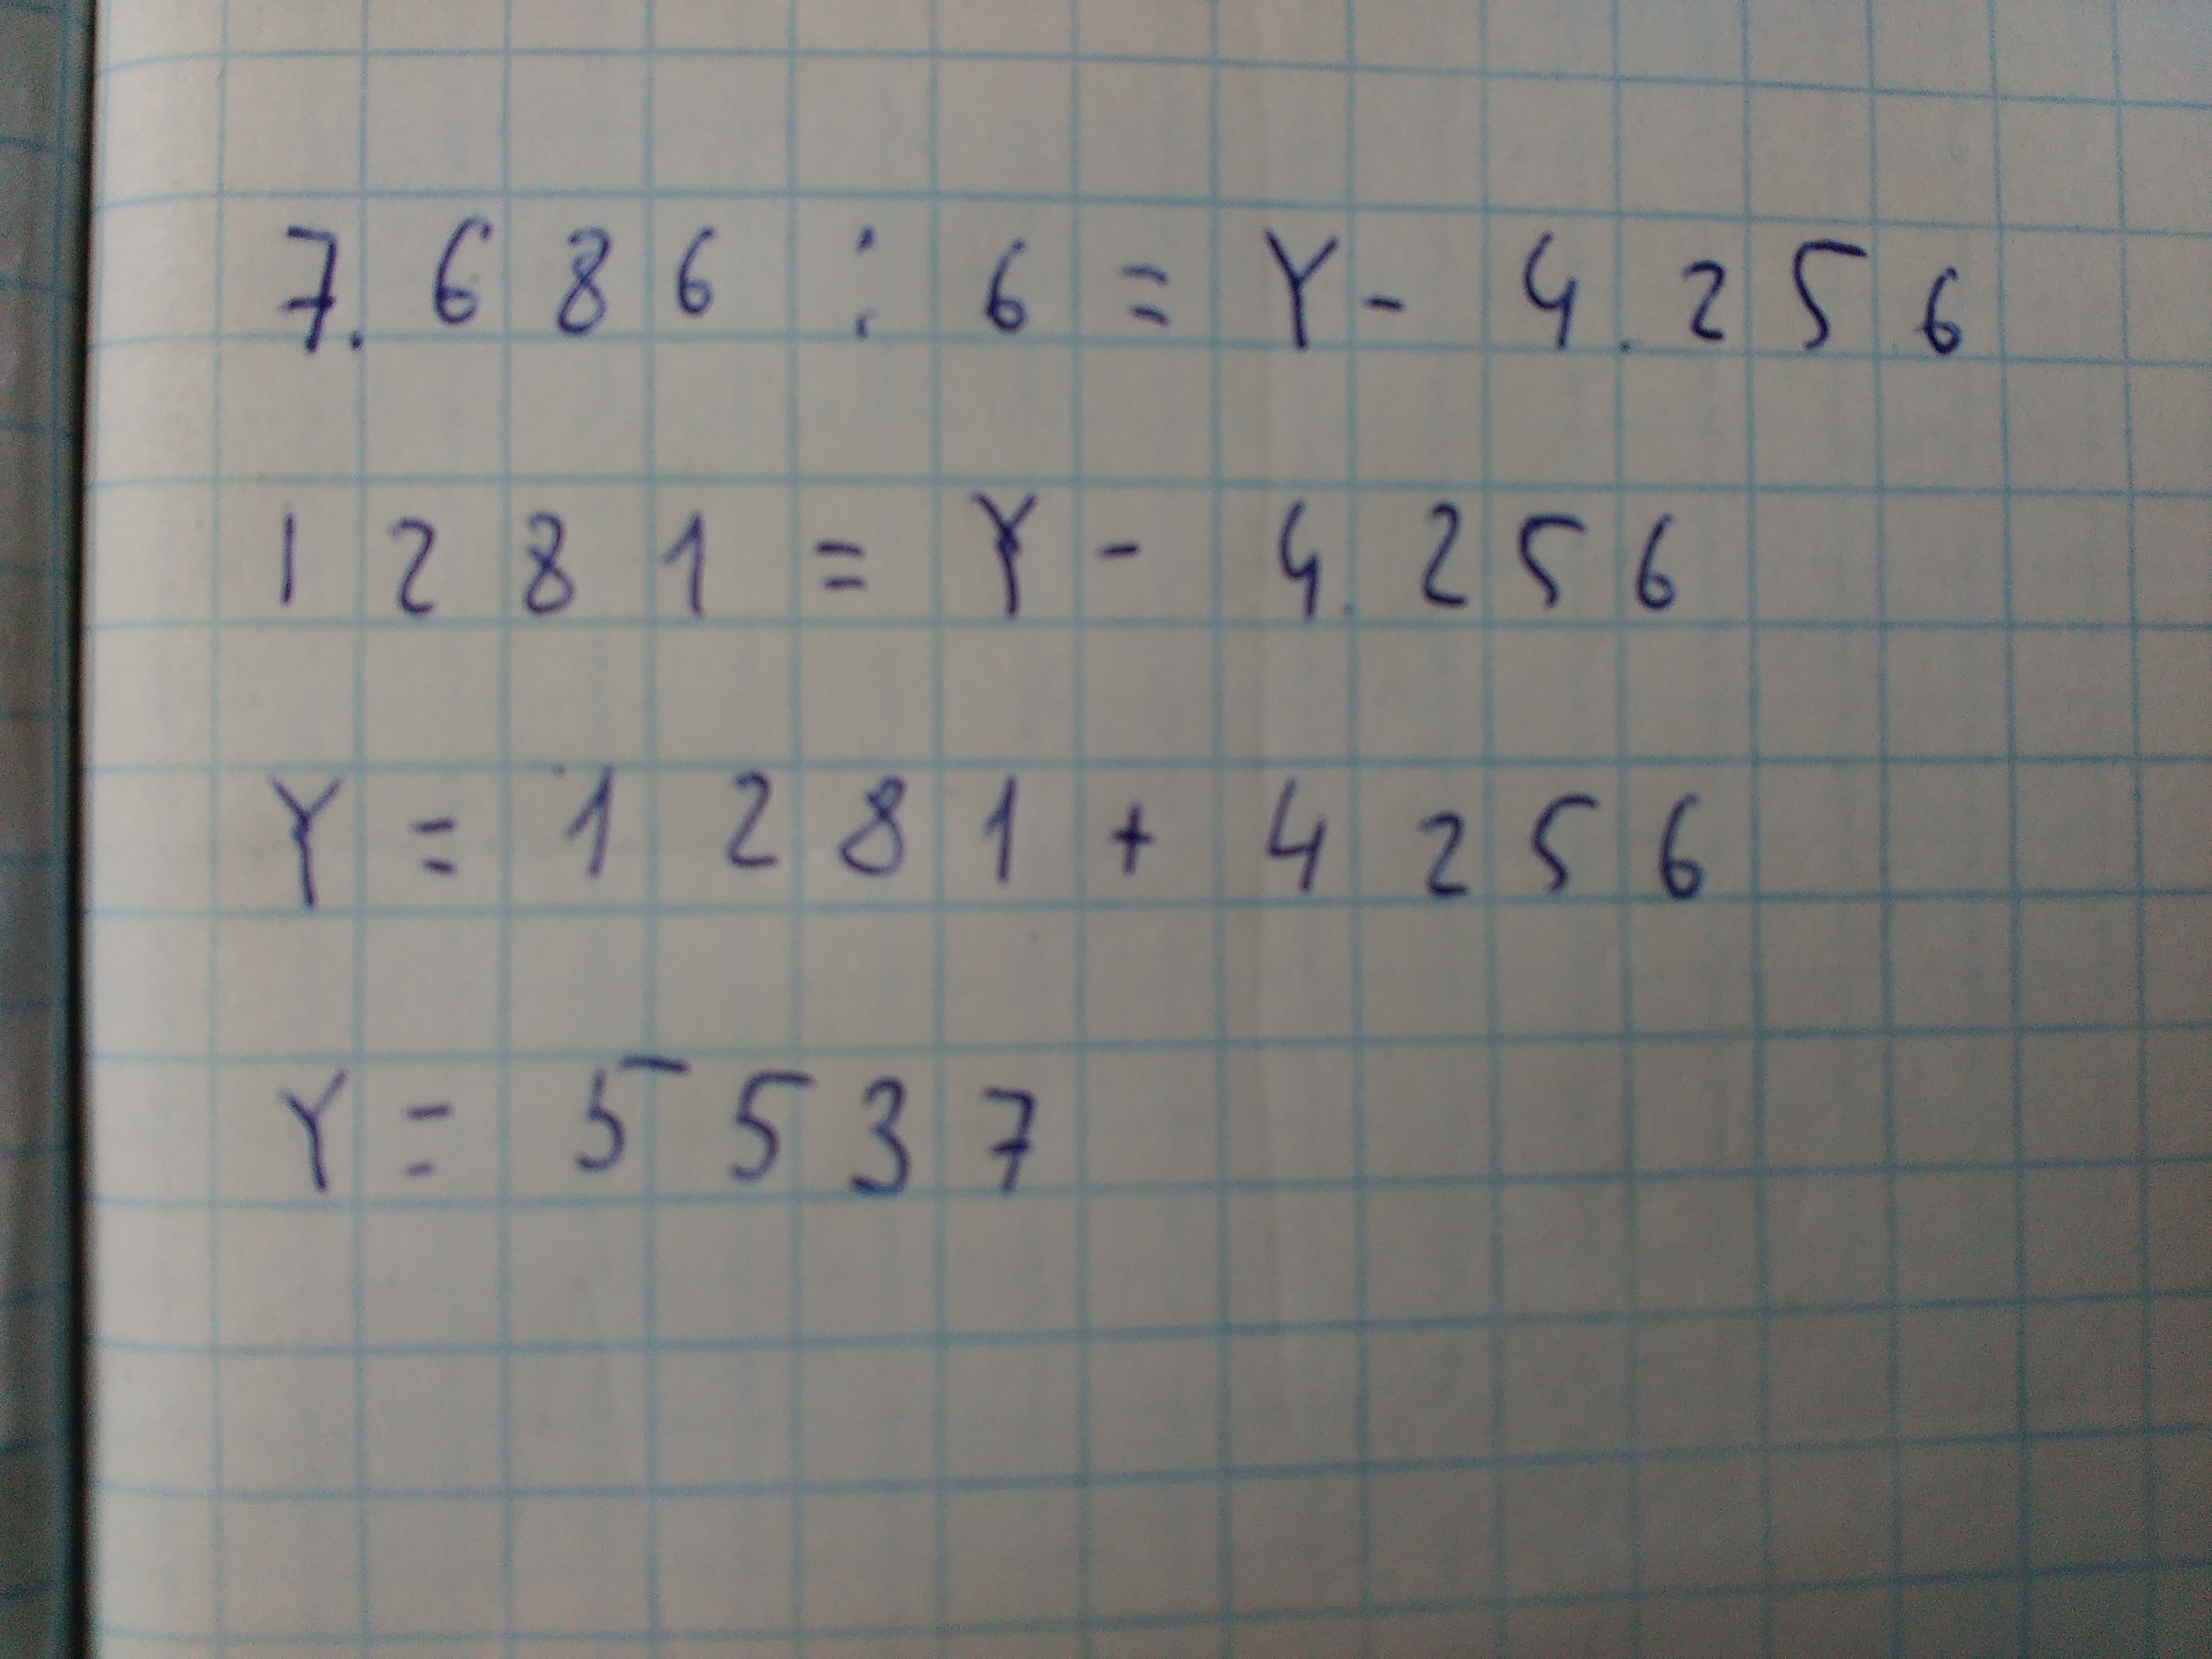 7.686 : 6 = Y - 4.256
1281 = Y - 4.256
Y = 1281 + 4256
Y = 5537